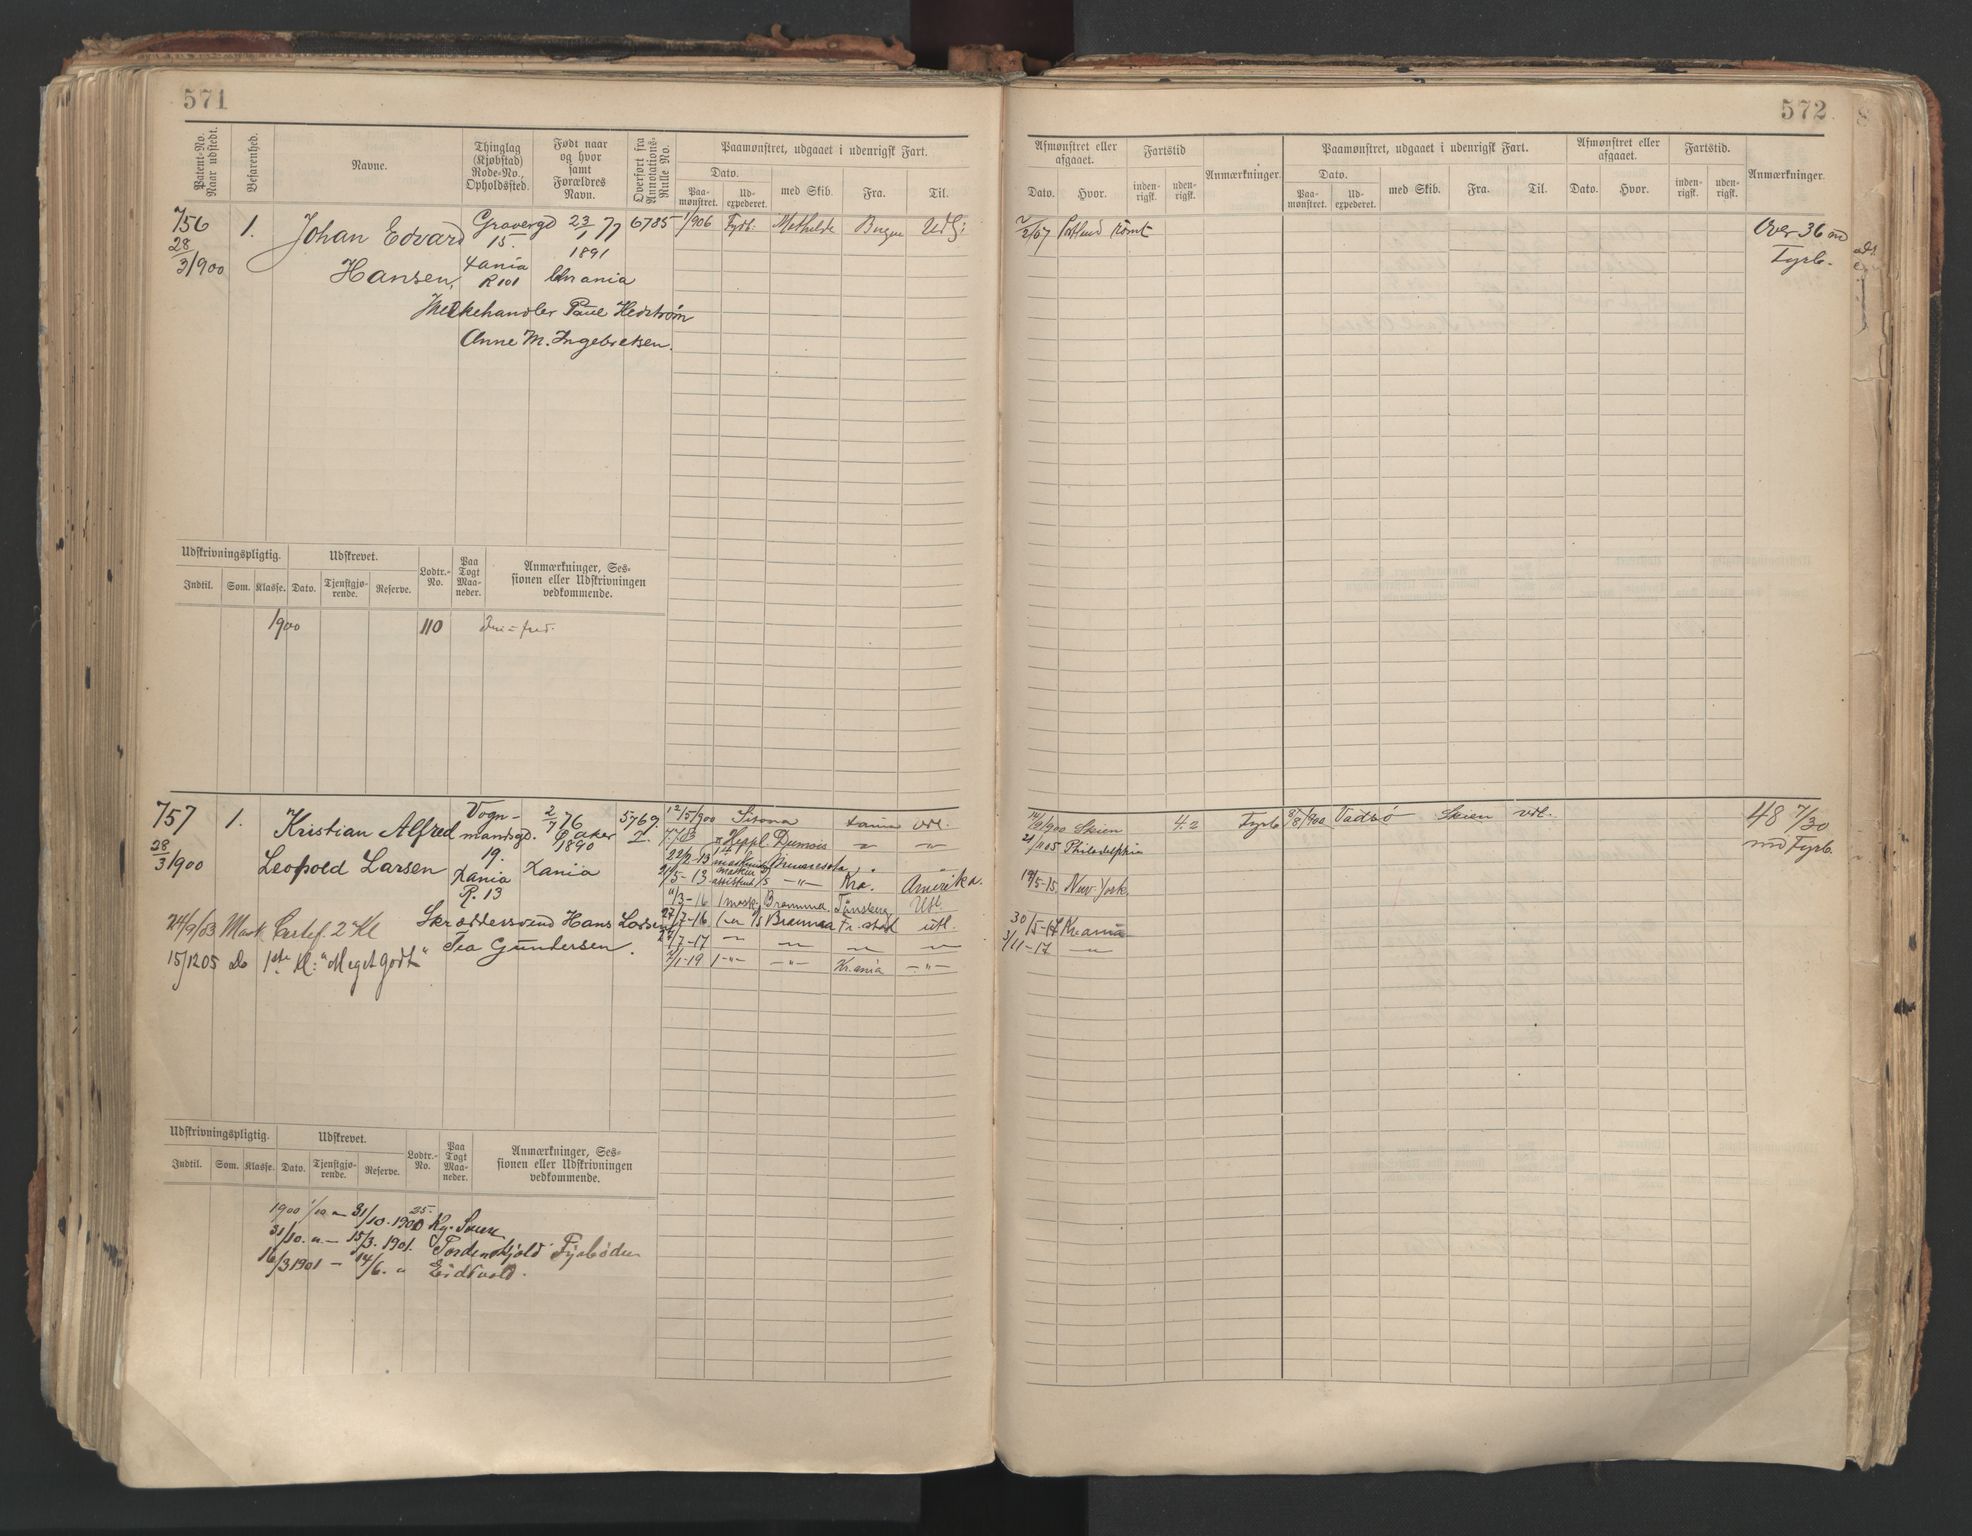 571
Patent-No. Naar udstedt.
Befarenhed.
Navne.
Thinglag (Kjøbstad) Rode-No., Opholdssted.
Født naar og hvor samt Forældres Navn.
Overført fra Annotations-Rulle No.
Paamønstret, udgaaet i udenrigsk Fart.
Dato.
Paa-mønstret.
Ud-expederet.
med Skib.
Fra.
Til.
756 1. Johan Edvard Gravergd 23/1 77 6785 1/906 Fydb: Methilde Bergen Udl:
28/3/900 Hansen, 15. 1891
Xania R 101 Chrania
Melkehandler Paul Hedstrøm
Anne M. Ingebretsen.
Udskrivningspligtig.
Udskrevet.
Lodtr.-No.
Paa Togt Maa-neder.
Anmærkninger, Ses-sionen eller Udskrivningen vedkommende.
Indtil. Som. Klasse. Dato. Tjenstgjø-rende. Reserve.
1900 110
757 1. Kristian Alfred Vogn- 2/7 76 5769 12/5/900 Sitona Xania Udl.
28/3/900 Leopold Larsen mandsgd. Øaker 1890
19. Xania
Xania
R. 13
Heppl. Dumois
22/2-13
21/5-13 assistent Kra. Amerika.
11/3-16 1 mask. Tønsberg Utl.
24/9/03 Mask. Certef. 2 Kl Skræddersvend Hans Larsen 27/7-16 Fr.stad utl.
15/12 05 Do 1ste Kl: "Meget godt" Tea Gundersen. 2/7-17
2/1-19 Kr.ania
Udskrivningspligtig.
Udskrevet.
Lodtr.-No.
Paa Togt Maa-neder.
Anmærkninger, Ses-sionen eller Udskrivningen vedkommende.
Indtil. Som. Klasse. Dato. Tjenstgjø-rende. Reserve.
1900 1/10 - 31/10.1900
31/10. - 15/3.1901. Tordenskjold Fyrbøder
16/3 1901 - 14/6. " Eidsvold.
572
Afmønstret eller afgaaet.
Fartstid
Anmærkninger.
Paamønstret, udgaaet i udenrigsk Fart.
Afmønstret eller afgaaet.
Fartstid.
Anmærkninger.
Dato. Hvor. inden-rigsk. uden-rigsk.
Dato. Paa-mønstret. Ud-expederet. med Skib. Fra. Til. Dato. Hvor. inden-rigsk. uden-rigsk.
2/2/07 Portland rømt Over 36 md
Fyrb.
14/9/900 Skien 4.2 Fyrb 8/8/900 Vadsö Skien Udl. 48 7/30
21/1105 Philadelphia md Fyrb.
19/5-15. New-York
30/5-17 Kr.ania
3/11-17 -"-